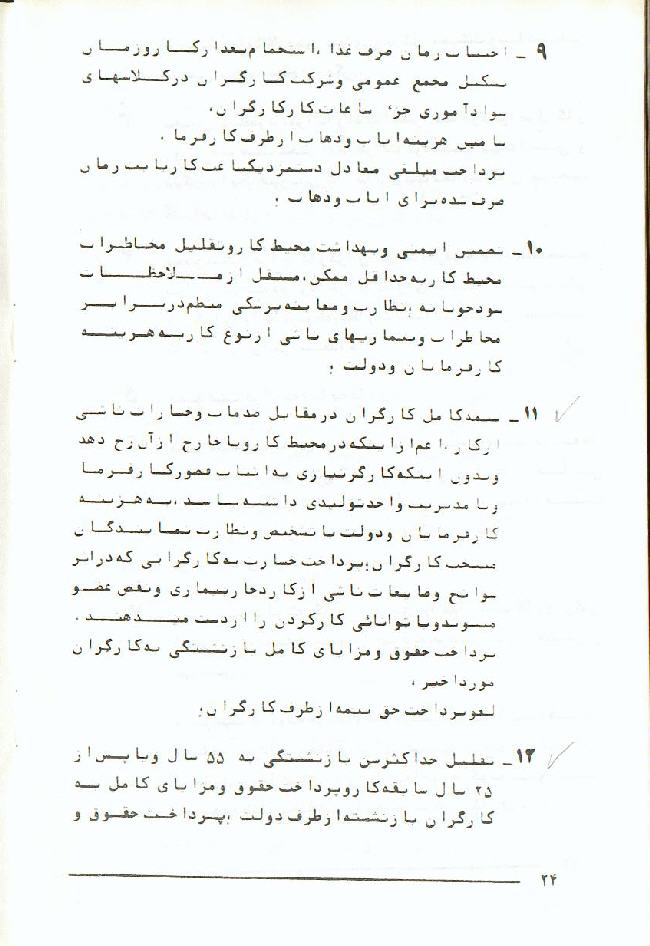 ۹ ـ احتساب زمان صرف غذا ، استحمام بعد از کار و زمان
تشکیل مجمع عمومی و شرکت کارگران در کلاسهای
سوادآموزی جزء ساعات کار کارگران.
تامین هزینه ایاب و ذهاب از طرف کارفرما .
پرداخت مبلغی معادل دستمزد یکساعت کار بابت زمان
صرف شده برای ایاب و ذهاب ؛
۱۰ ـ تضمین ایمنی و بهداشت محیط کار و تقلیل مخاطرات
محیط کار به حداقل ممکن، مستقل از ملاحظات
سودجویانه ؛ نظارت و معاینه پزشکی منظم در برابر
مخاطرات و بیماریهای ناشی از نوع کار به هزینه
کارفرمایان و دولت ؛
۱۱ ـ بیمه کامل کارگران در مقابل صدمات و خسارات ناشی
از کار، اعم از اینکه در محیط کار و یا خارج از آن رخ دهد
و بدون اینکه کارگر نیازی به اثبات قصور کارفرما
و یا مدیریت واحد تولیدی داشته باشد ، به هزینه
کارفرمایان و دولت با تشخیص و نظارت نمایندگان
منتخب کارگران؛ پرداخت خسارت به کارگرانی که در اثر
سوانح و ضایعات ناشی از کار دچار بیماری و نقص عضو
میشوند و یا توانائی کار کردن را از دست میدهند .
پرداخت حقوق و مزایای کامل بازنشستگی به کارگران
مورد اخیر .
لغو پرداخت حق بیمه از طرف کارگران؛
۱۲ ـ تقلیل حداکثر سن بازنشستگی به ۵۵ سال و یا پس از
۲۵ سال سابقه کار و پرداخت حقوق و مزایای کامل به
کارگران بازنشسته از طرف دولت ؛ پرداخت حقوق و
۲۴